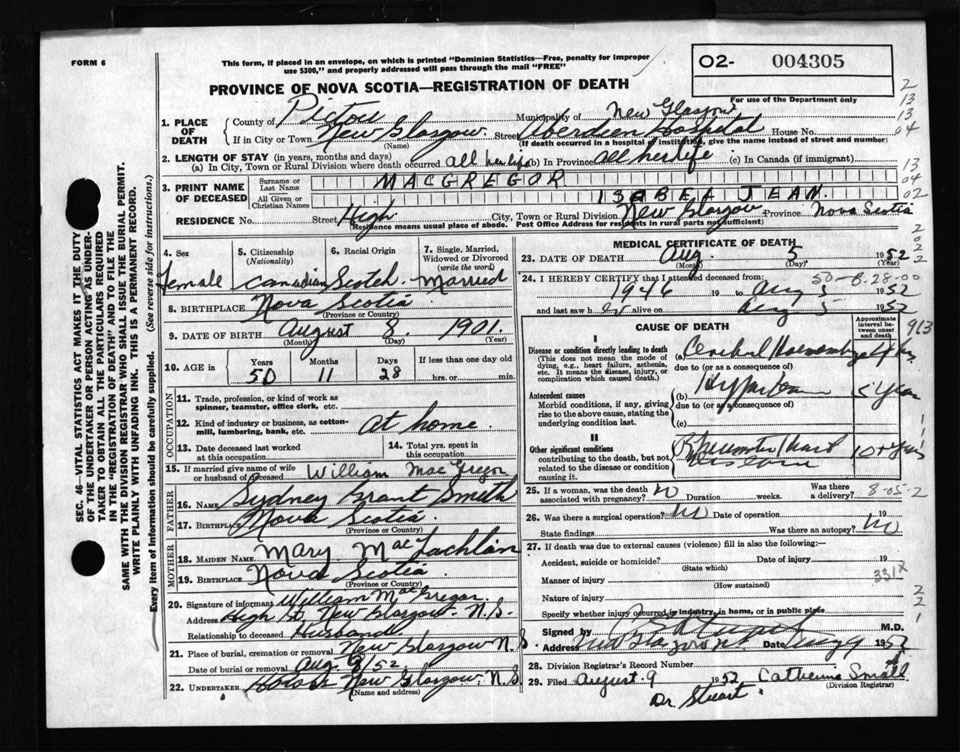 FORM 6
This form, if placed in an envelope, on which is printed "Dominion Statistics—Free, penalty for improper
use $300," and properly addressed will pass through the mail "FREE"
O2- 004305
For use of the Department only
PROVINCE OF NOVA SCOTIA—REGISTRATION OF DEATH
1. PLACE OF DEATH
County of Pictou Municipality of New Glasgow
If in City or Town New Glasgow Street Aberdeen Hospital House No.
(Name) (If death occurred in a hospital or institution, give the name instead of street and number)
2. LENGTH OF STAY (in years, months and days)
(a) In City, Town or Rural Division where death occurred all her life (b) In Province all her life (c) In Canada (if immigrant)
3. PRINT NAME OF DECEASED
Surname or Last Name MACGREGOR
All Given or Christian Names ISABEL JEAN
RESIDENCE No. Street High City, Town or Rural Division New Glasgow Province Nova Scotia
(Residence means usual place of abode. Post Office Address for residents in rural parts not sufficient)
4. Sex Female
5. Citizenship (Nationality) Canadian
6. Racial Origin Scotch
7. Single, Married, Widowed or Divorced (write the word) Married
8. BIRTHPLACE Nova Scotia
(Province or Country)
9. DATE OF BIRTH August 8, 1901
(Month) (Day) (Year)
10. AGE in Years 50 Months 11 Days 28 If less than one day old hrs. or min.
OCCUPATION
11. Trade, profession, or kind of work as spinner, teamster, office clerk, etc.
12. Kind of industry or business, as cotton-mill, lumbering, bank, etc. At home
13. Date deceased last worked at this occupation
14. Total yrs. spent in this occupation
15. If married give name of wife or husband of deceased William MacGregor
FATHER
16. Name Sydney Grant Smith
17. Birthplace Nova Scotia
(Province or Country)
MOTHER
18. Maiden Name Mary MacLachlan
19. Birthplace Nova Scotia
(Province or Country)
20. Signature of informant William MacGregor
Address High St. New Glasgow N.S.
Relationship to deceased Husband
21. Place of burial, cremation or removal New Glasgow N.S.
Date of burial or removal Aug. 8/52
22. Undertaker New Glasgow, N.S.
(Name and address)
MEDICAL CERTIFICATE OF DEATH
23. DATE OF DEATH Aug. 5 1952
(Month) (Day) (Year)
50-B-28-00
24. I HEREBY CERTIFY that I attended deceased from:
1946 19 to Aug 5 1952
and last saw her alive on Aug 5 1952
CAUSE OF DEATH
Approximate interval between onset and death
I
Disease or condition directly leading to death
(This does not mean the mode of dying, e.g., heart failure, asthenia, etc. It means the disease, injury, or complication which caused death.)
(a) Cerebral
due to (or as a consequence of)
Antecedent causes
Morbid conditions, if any, giving rise to the above cause, stating the underlying condition last.
(b)
due to (or as a consequence of)
(c)
II
Other significant conditions
contributing to the death, but not related to the disease or condition causing it.
Rheumatic Heart
10+ years
25. If a woman, was the death associated with pregnancy? No Duration weeks. Was there a delivery?
8-05-2
26. Was there a surgical operation? No Date of operation 19
State findings Was there an autopsy? No
27. If death was due to external causes (violence) fill in also the following:—
Accident, suicide or homicide? Date of injury 19
(State which)
Manner of injury 331X
(How sustained)
Nature of injury
Specify whether injury occurred in industry, in home, or in public place
Signed by M.D.
Address New Glasgow Date Aug 9 1952
28. Division Registrar's Record Number
29. Filed August 9 1952 Catherine Small
(Division Registrar)
Dr Stuart
SEC. 46—VITAL STATISTICS ACT MAKES IT THE DUTY
OF THE UNDERTAKER OR PERSON ACTING AS UNDER-
TAKER TO OBTAIN ALL THE PARTICULARS REQUIRED
IN THE "REGISTRATION OF DEATH" AND TO FILE THE
SAME WITH THE DIVISION REGISTRAR WHO SHALL ISSUE THE BURIAL PERMIT.
WRITE PLAINLY WITH UNFADING INK. THIS IS A PERMANENT RECORD.
Every item of information should be carefully supplied. (See reverse side for instructions.)